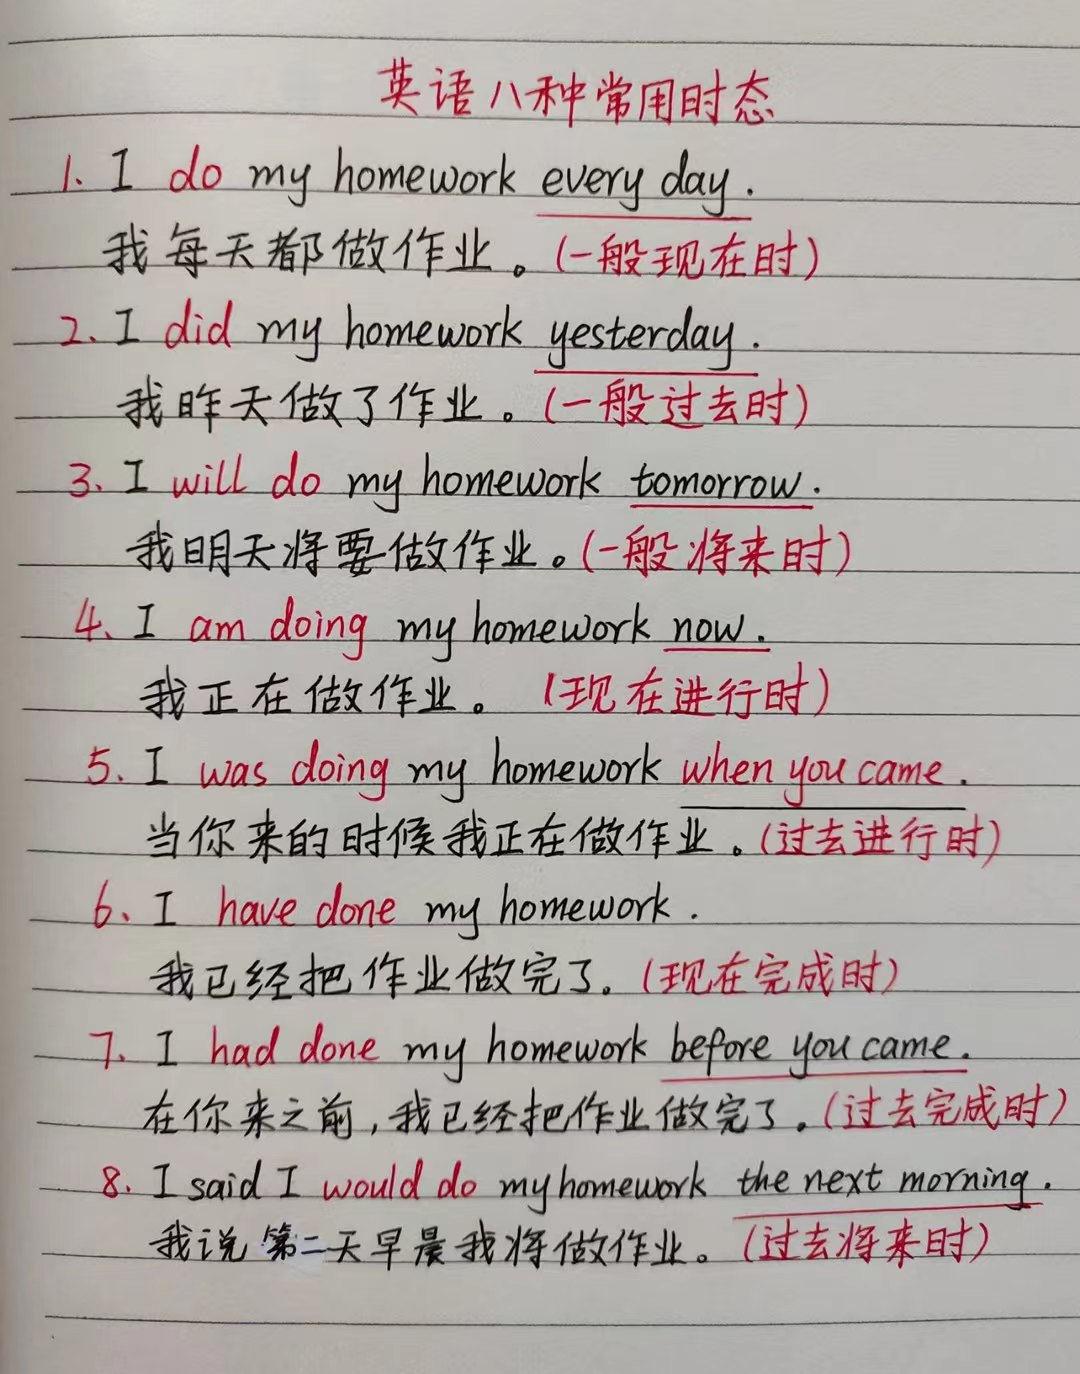 英语八种常用时态
1. I do my homework every day.
我每天都做作业。(一般现在时)
2. I did my homework yesterday.
我昨天做了作业。(一般过去时)
3. I will do my homework tomorrow.
我明天将要做作业。(一般将来时)
4. I am doing my homework now.
我正在做作业。(现在进行时)
5. I was doing my homework when you came.
当你来的时候我正在做作业。(过去进行时)
6. I have done my homework.
我已经把作业做完了。(现在完成时)
7. I had done my homework before you came.
在你来之前,我已经把作业做完了。(过去完成时)
8. I said I would do my homework the next morning.
我说第二天早晨我将做作业。(过去将来时)